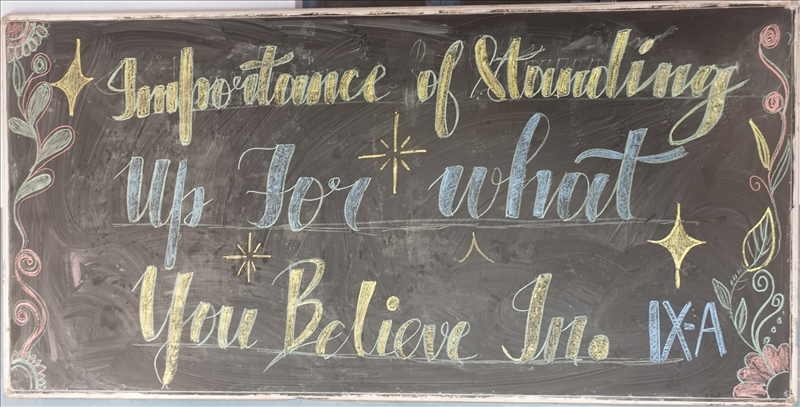 Importance of Standing
Up For what
You Believe In. IX-A